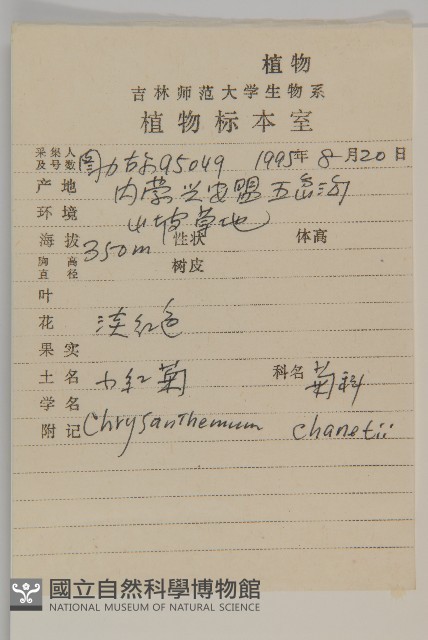 植物
吉林师范大学生物系
植物标本室
采集人及号数 图力古尔95049 1995年8月20日
产地 内蒙兴安盟五岔沟
环境 山坡草地
海拔 350m 性状 体高
胸高直径 树皮
叶
花 淡红色
果实
土名 小红菊 科名 菊科
学名
附记 Chrysanthemum chanetii
國立自然科學博物館
NATIONAL MUSEUM OF NATURAL SCIENCE